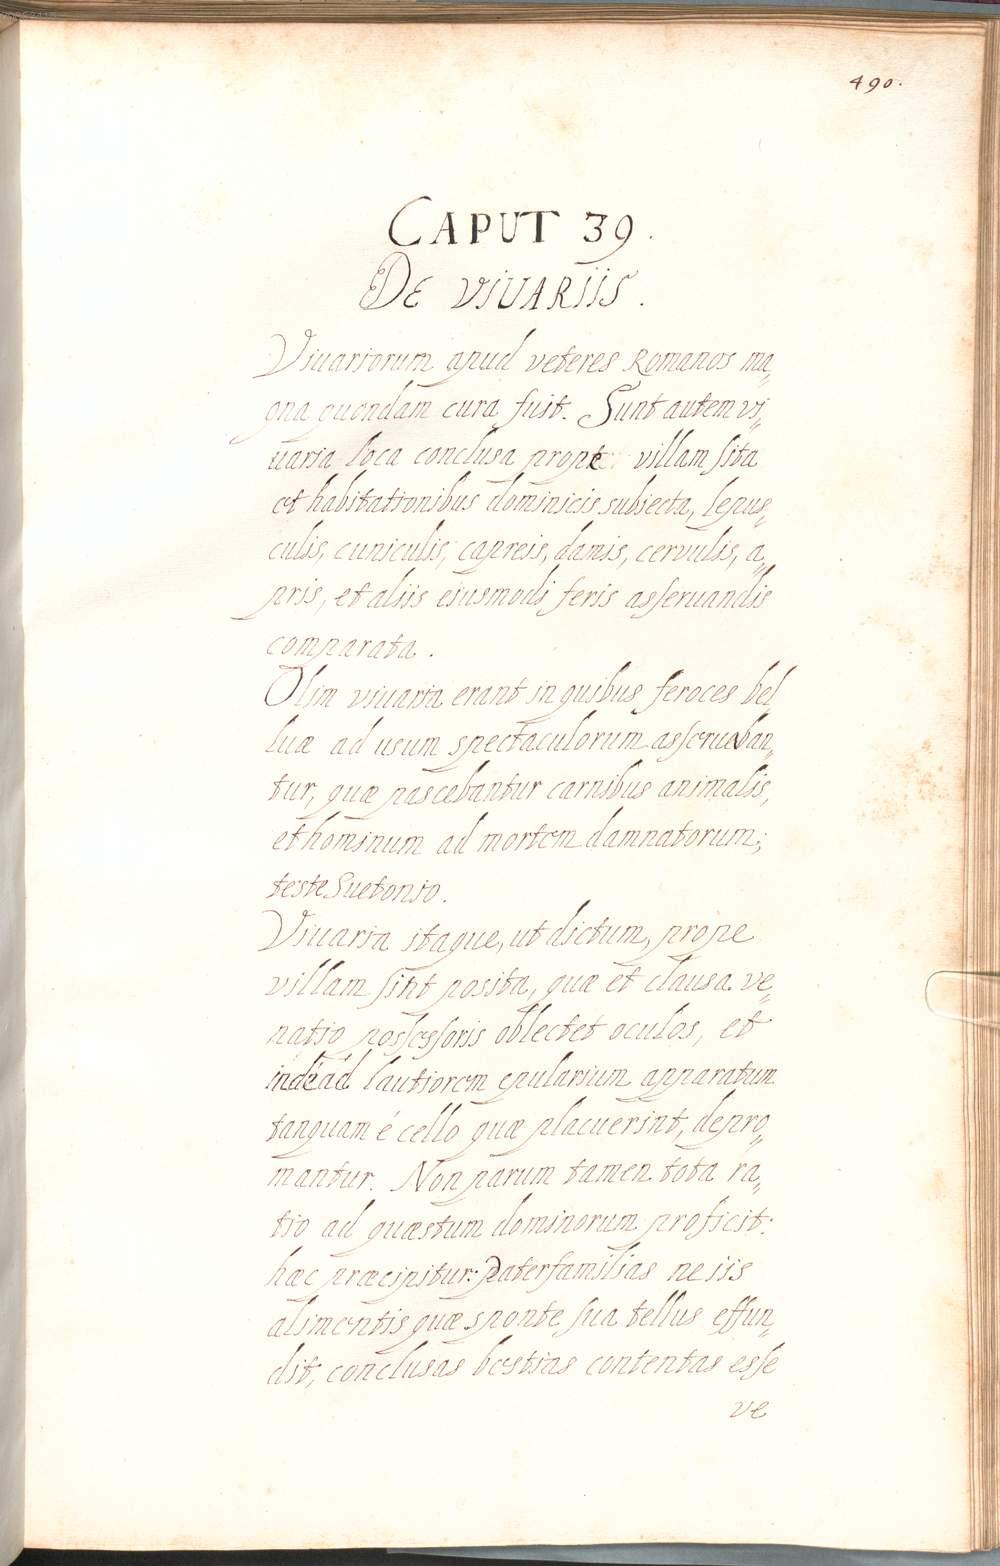 490.
CAPUT 39.
DE VIUARIIS.
Viuariorum apud veteres Romanos ma„
gna quondam cura fuit. Sunt autem vi„
uaria loca conclusa prope villam sita
et habitationibus dominicis subiecta, lepus„
culis, cuniculis, capreis, damis, cervulis, a„
pris, et aliis eiusmodi feris asseruandis
comparata.
Olim viuaria erant in quibus feroces bel
luæ ad usum spectaculorum asseruaban„
tur, quæ pascebantur carnibus animalis,
et hominum ad mortem damnatorum;
teste Suetonio.
Viuaria itaque, ut dictum, prope
villam sint posita, quæ et clausa ve„
natio possessoris oblectet oculos, et
inde ad lautiorem epularium apparatum
tanquam é cello quæ placuerint, depro„
mantur. Non parum tamen tota ra„
tio ad quæstum dominorum proficit:
hæc præcipitur: paterfamilias ne iis
alimentis quæ sponte sua tellus effun„
dit, conclusas bestias contentas esse
ve